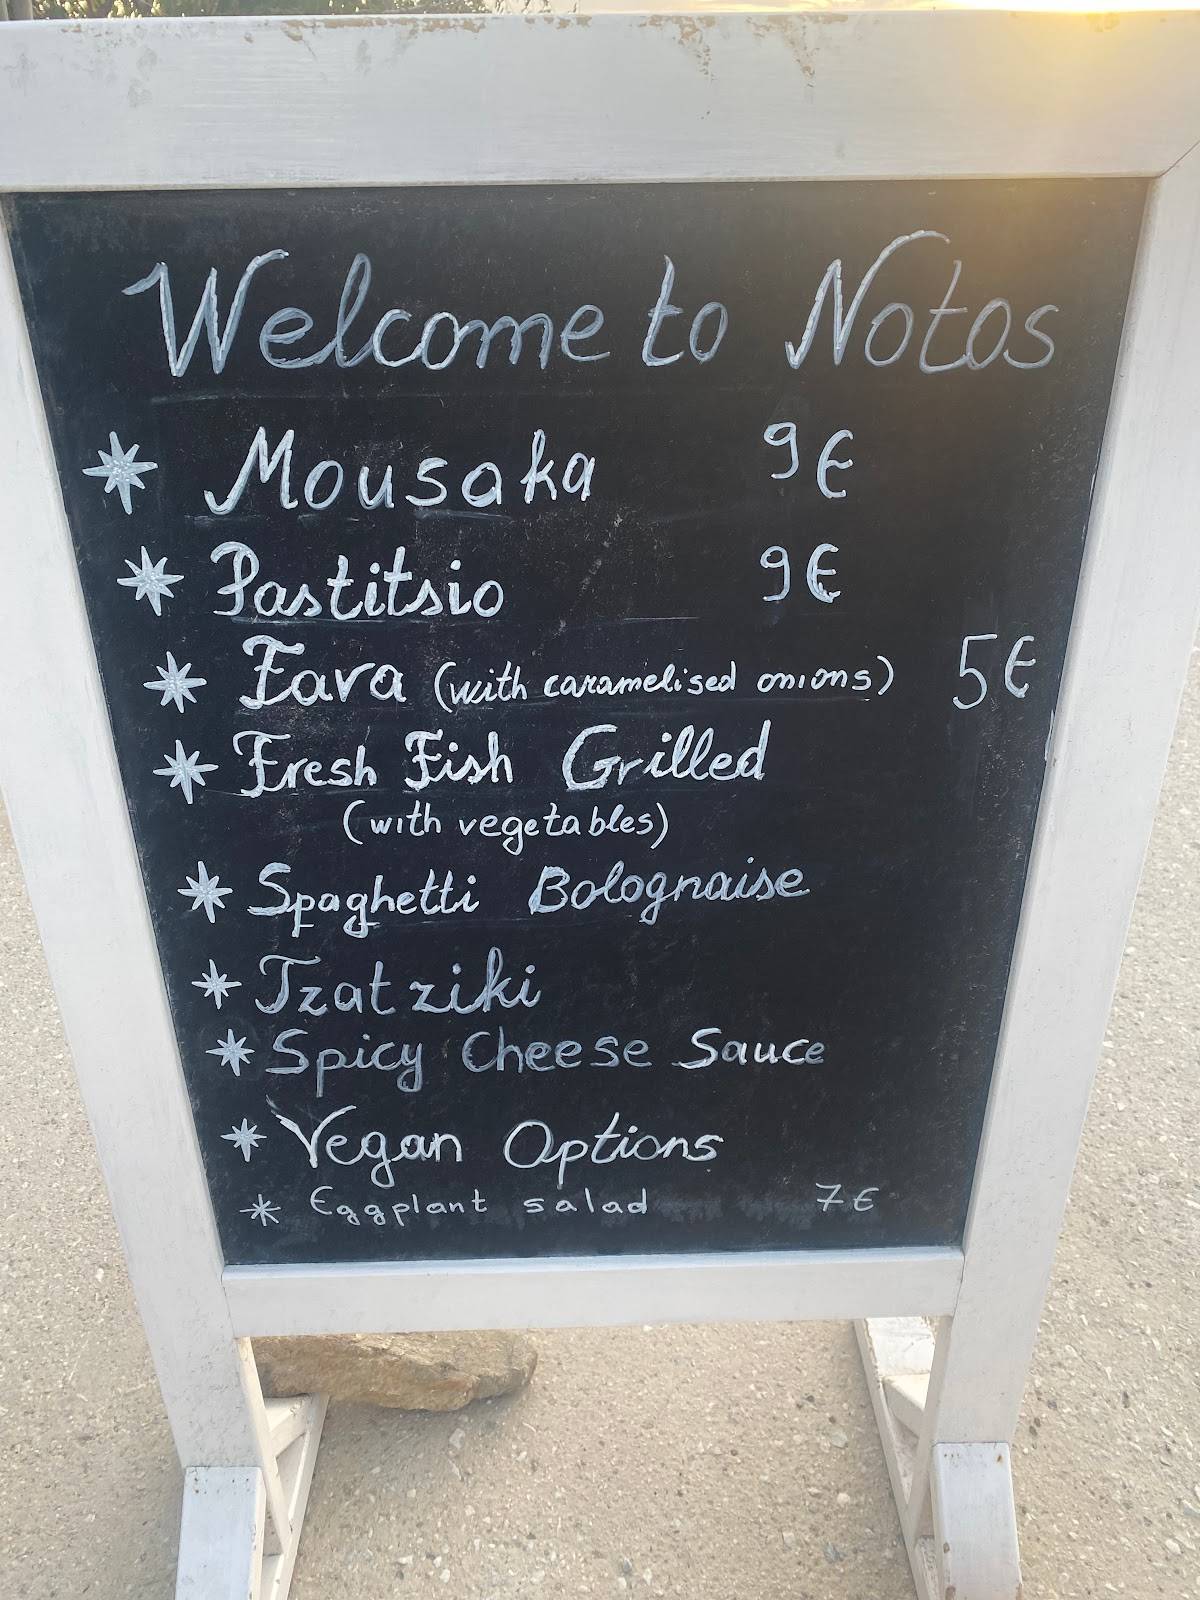 Welcome to Notos
Mousaka 9€
Pastitsio 9€
Fava (with caramelised onions) 5€
Fresh Fish Grilled
(with vegetables)
Spaghetti Bolognaise
Tzatziki
Spicy Cheese Sauce
Vegan Options
Eggplant salad 7€